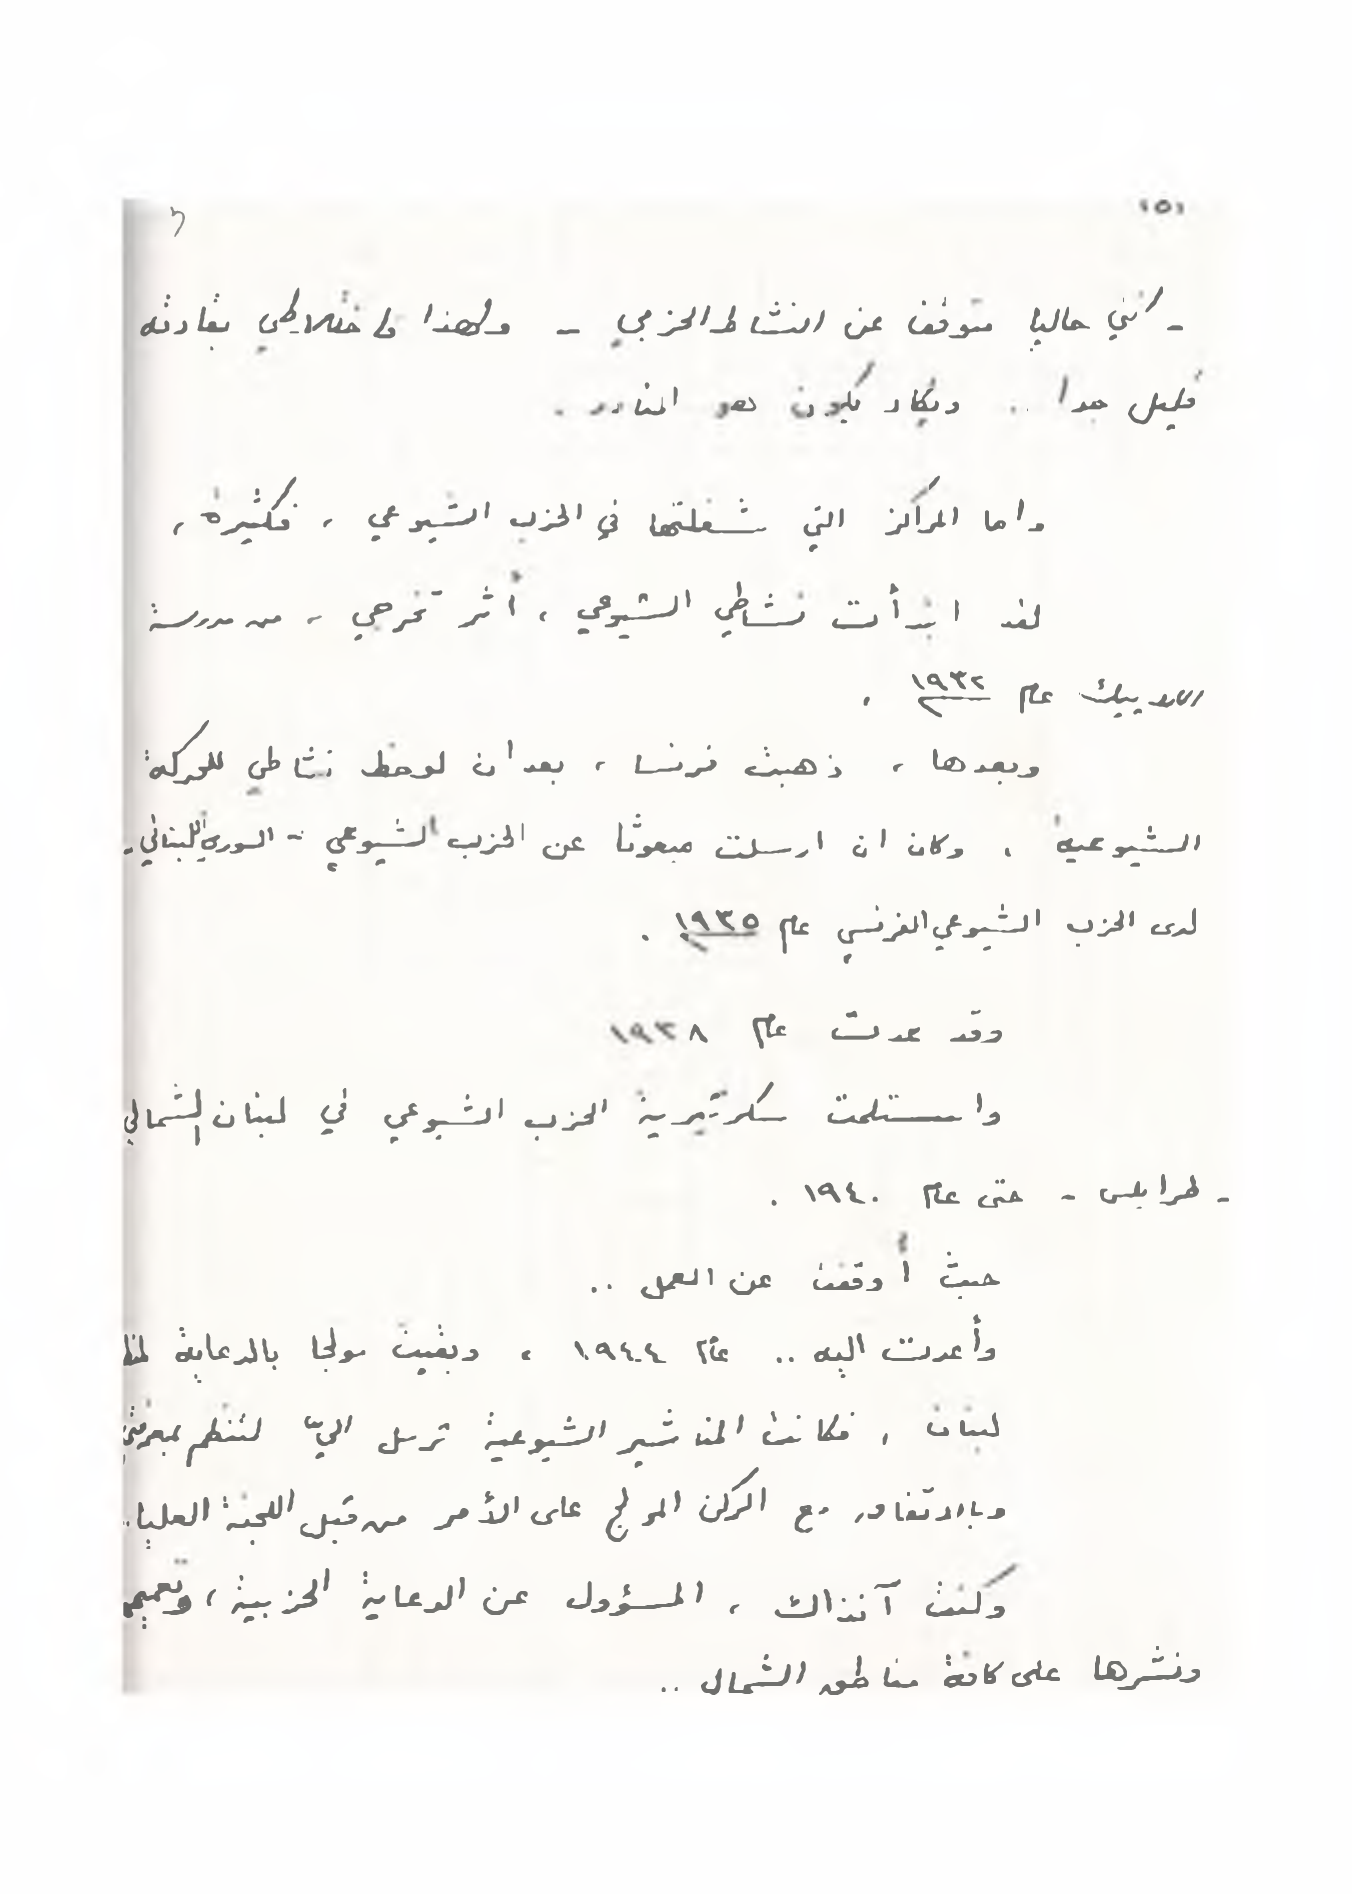 ١٥١
- كنني حاليا متوقف عن النشاط الحزبي - ولهذا فاختلاطي بقادته
قليل جدا .. ويكاد يكون هو النادر .
واما المراكز التي شغلتها في الحزب الشيوعي ، فكثيرة ،
لقد ابتدأت نشاطي الشيوعي ، أثر تخرجي - من مدرسة
اللاييك عام ١٩٣٢ .
وبعدها ، ذهبت فرنسا ، بعد أن لوحظ نشاطي للحركة
الشيوعية ، وكان ان ارسلت مبعوثا عن الحزب الشيوعي - السوري اللبناني -
لدى الحزب الشيوعي الفرنسي عام ١٩٣٥ .
وقد عدت عام ١٩٣٨
واستلمت سكرتيرية الحزب الشيوعي في لبنان الشمالي
- طرابلس - حتى عام ١٩٤٠ .
حيث أوقفت عن العمل ..
وأعدت اليه .. عام ١٩٤٤ ، وبقيت مولجا بالدعاية
لبنان ، فكانت المناشير الشيوعية ترسل اليّ لتنظم بمعرفتي
وبالاتفاق مع الركن المولج على الأمر من قبل اللجنة العليا ..
وكنت آنذاك ، المسؤول عن الدعاية الحزبية ، وتعميمها
ونشرها على كافة مناطق الشمال ..